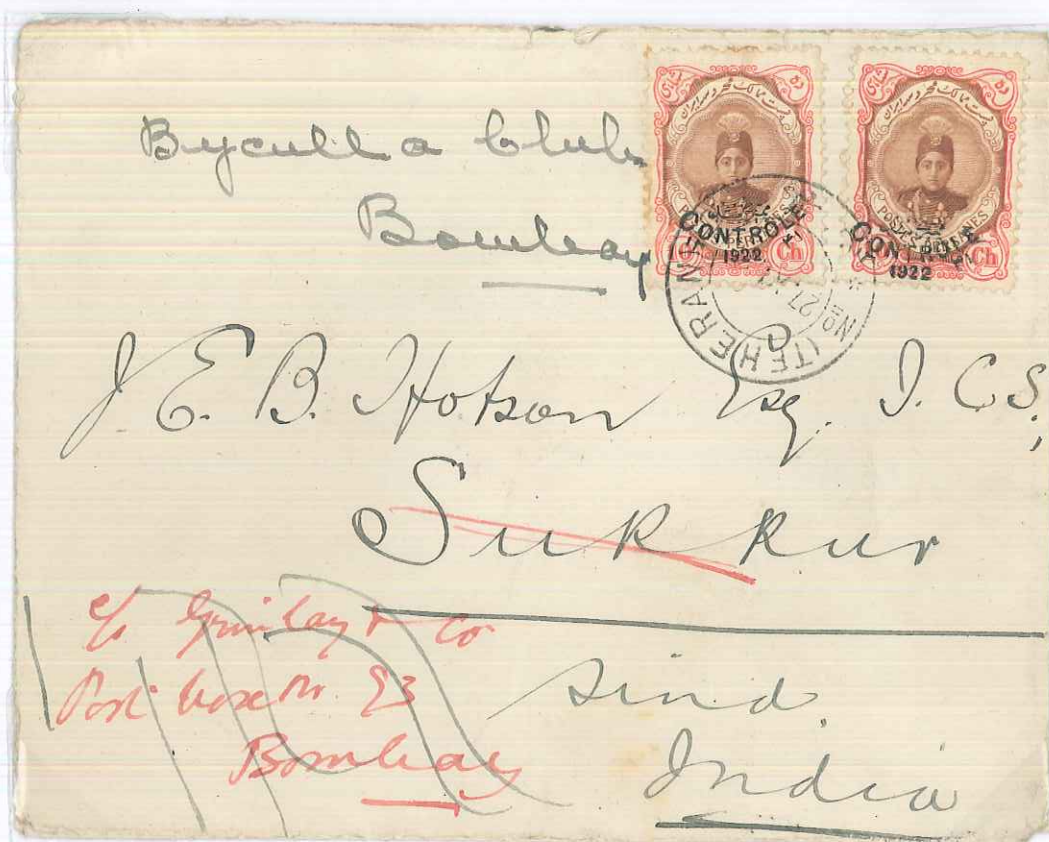 Byculla Club
Bombay
CONTRÔLE
1922
10 Ch
CONTRÔLE
1922
Ch
TEHERAN
27
J. E. B. Hotson Esq. I. C. S,
Sukkur
c/o Grindlay & Co
Post box No 93
Bombay
Sind.
India